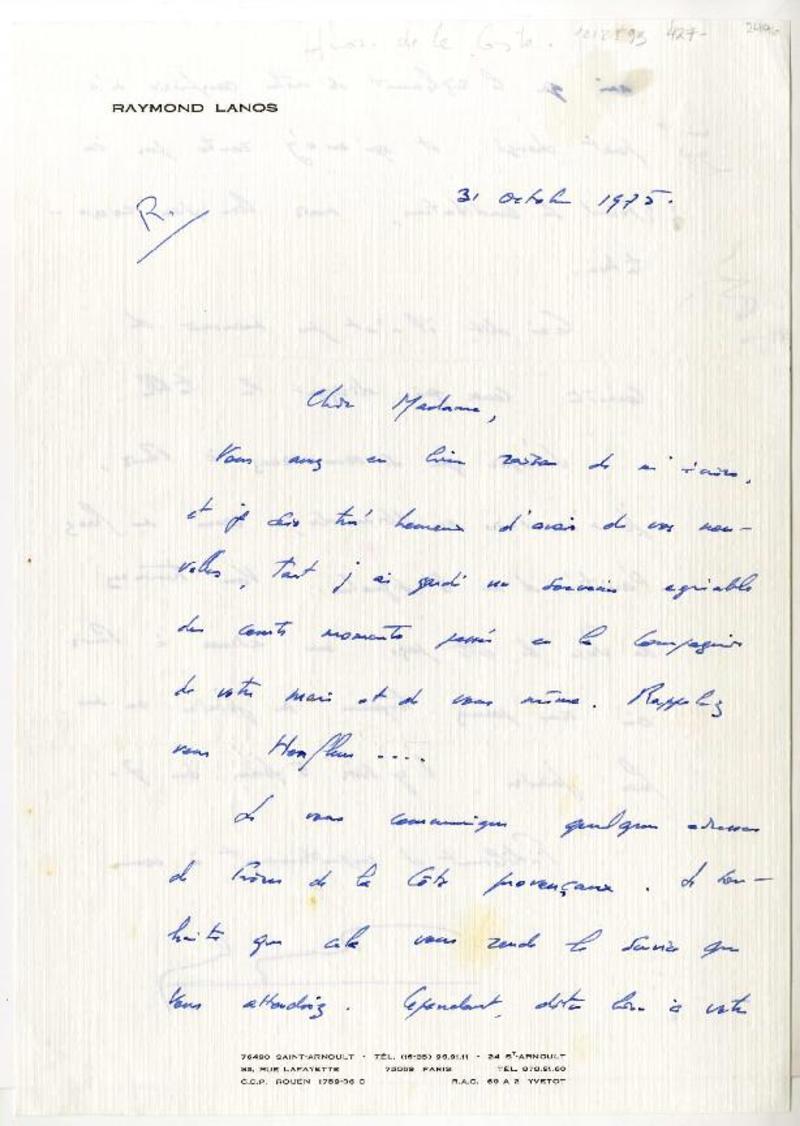 frères de la Coste. 1018793 427-
RAYMOND LANOS
R.
31 octobre 1975.
Chère Madame,
Vous avez eu bien raison de m'écrire,
et je suis très heureux d'avoir de vos nou-
velles, tant j'ai gardé un souvenir agréable
des courts moments passés en la compagnie
de votre mari et de vous même. Rappelez
vous Honfleur ....
Je vous communique quelques adresses
de Frères de la Côte provençaux. Je sou-
haite que cela vous rende le service que
vous attendiez. Cependant, dites bien à votre
76490 SAINT-ARNOULT · TÉL. (16-35) 96.91.11 · 24 ST-ARNOULT
88, RUE LAFAYETTE 75009 PARIS TÉL. 878.21.60
C.C.P. ROUEN 1759-06 C R.A.C. 60 A 2 YVETOT